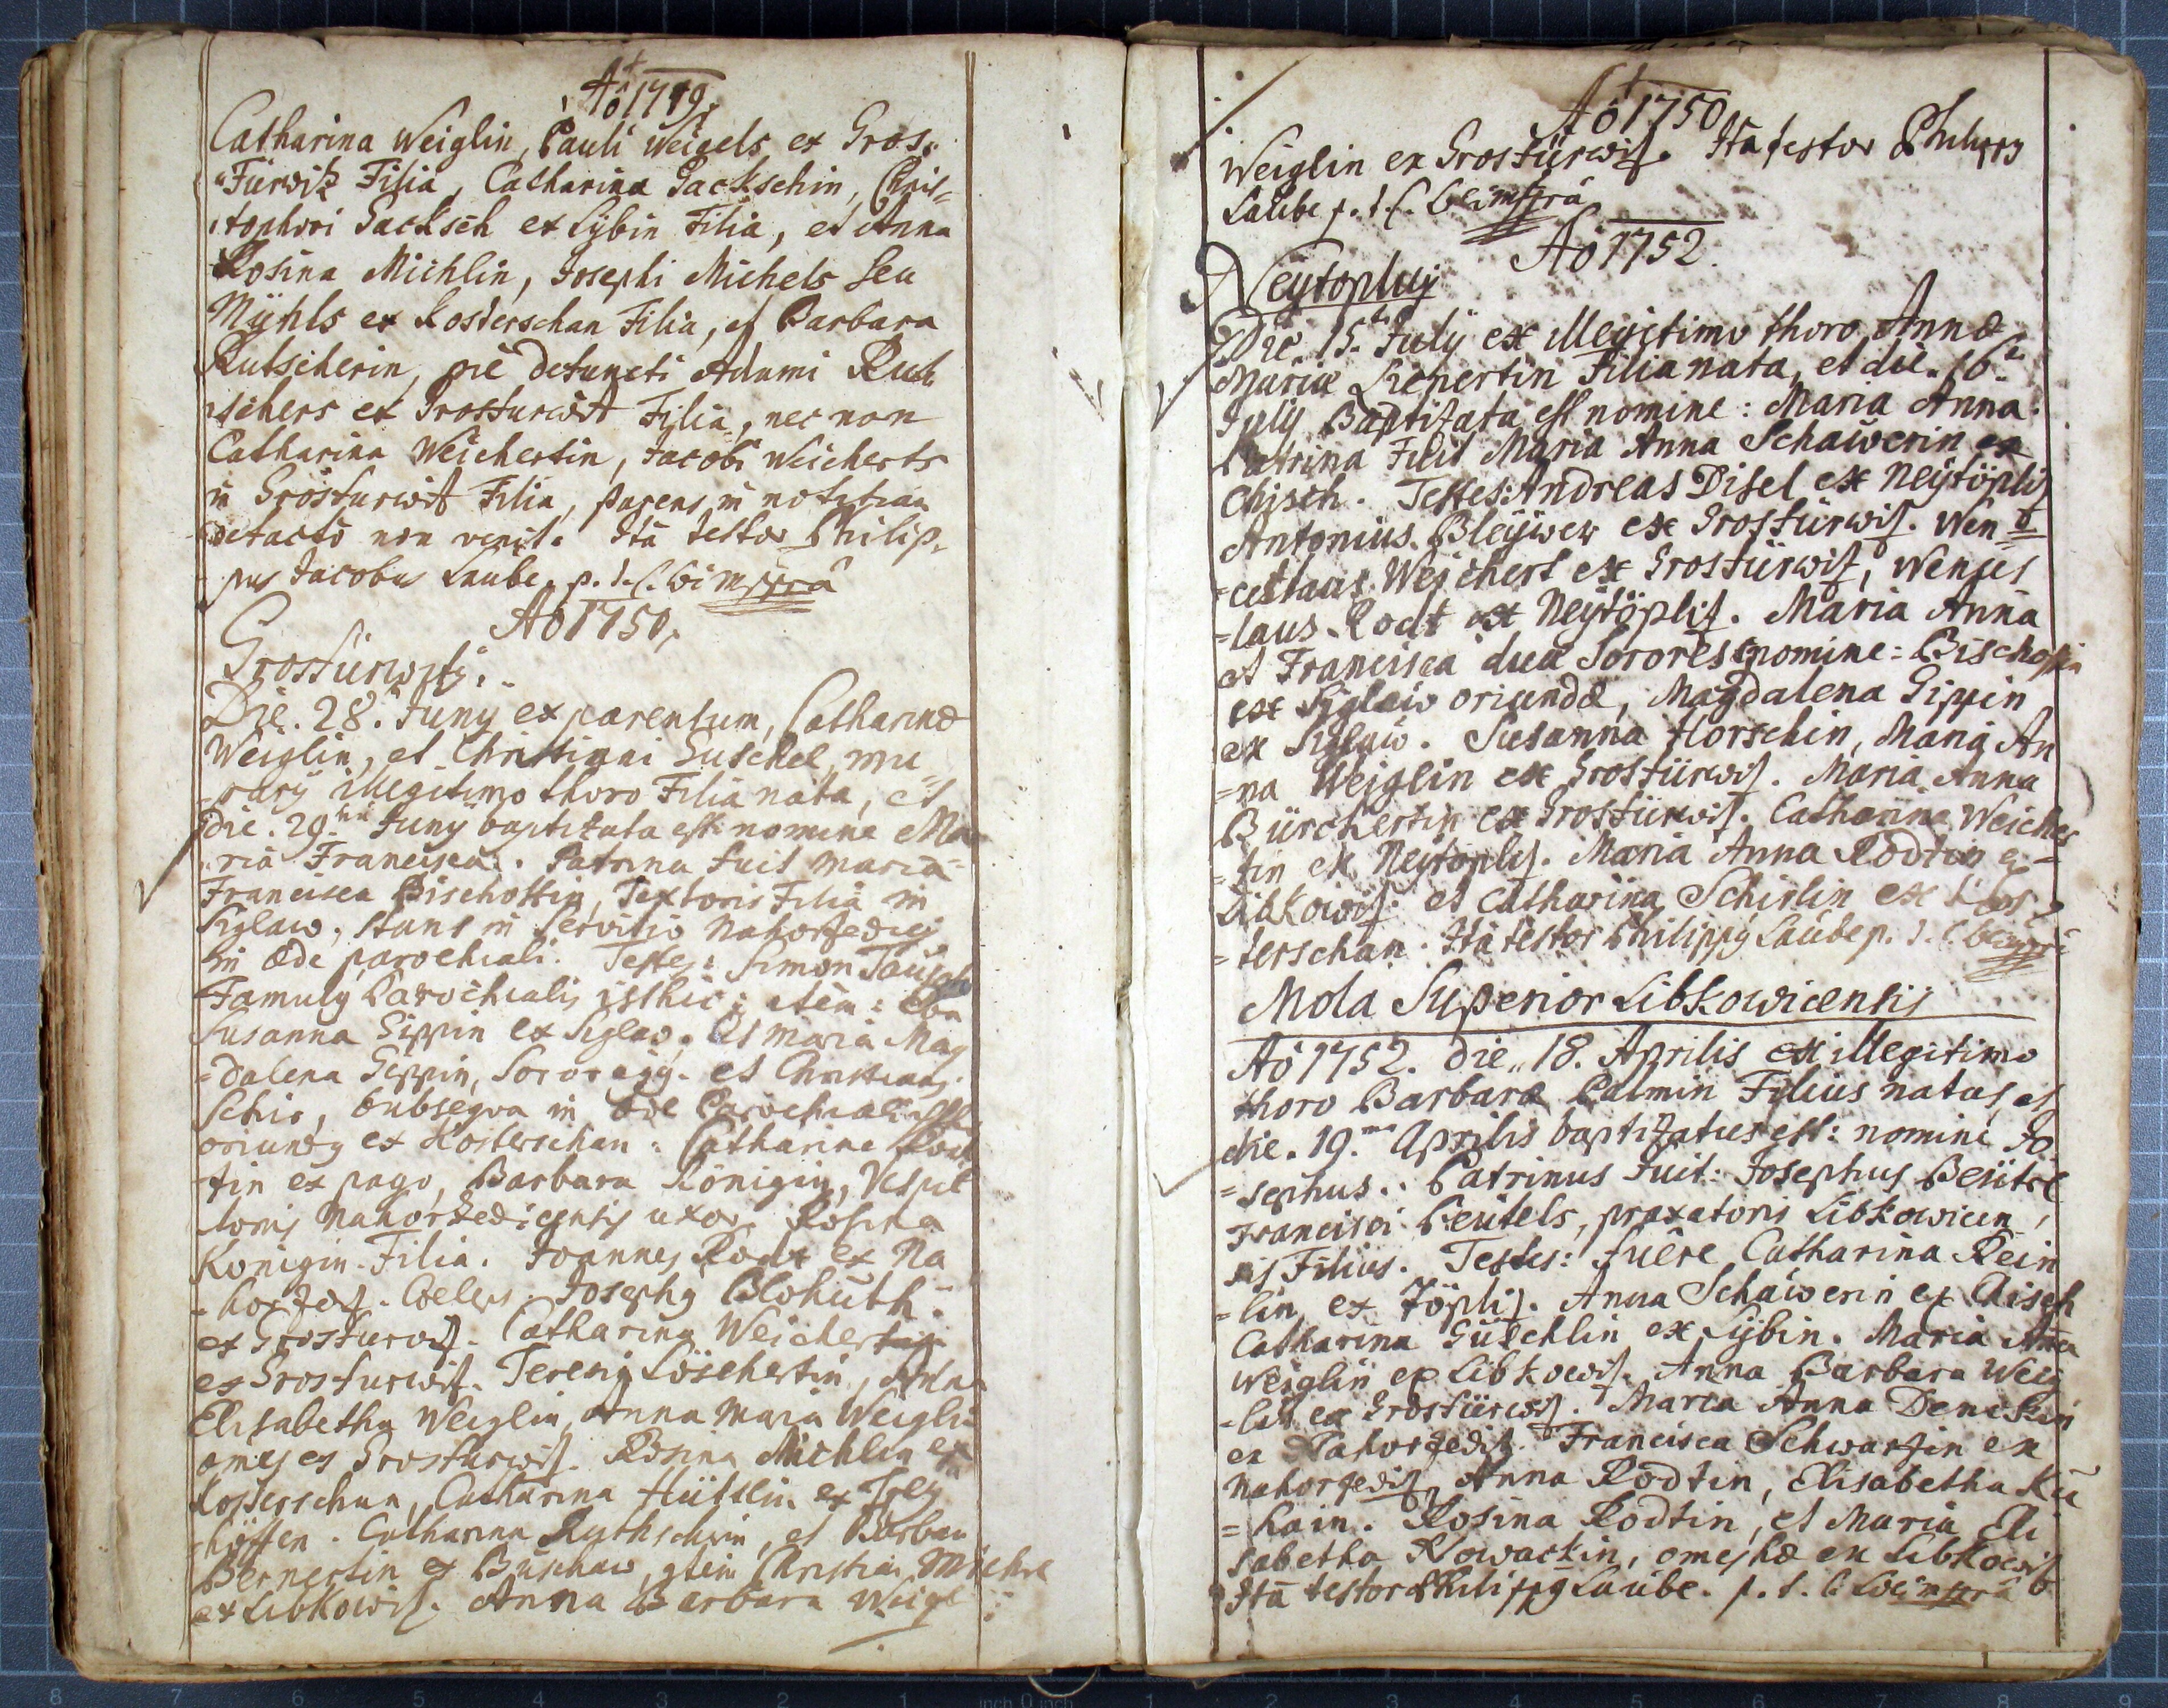 Aô 1749.
Catharina Weiglin, Pauli Weigels ex Gros=
"Türwitz Filia, Catharina Sackschin, Chris=
"tophori Sacksch ex Lÿbin Filia, et Anna
Rosina Michlin, Josephi Michels seu
Mÿhls ex Kosterschan Filia, et Barbara
Rutscherin, piè defuncti Adami Rut
"schers ex Grosturwitz Filia, nec non
Catharina Weichertin, Jacobi Weicherts
in Grosturwitz Filia, parens in notitiam
defacto non venit. Ità testor Philip=
pus Jacobus Laube, p. t. C. mppra
Aô 1750.
Grosturwitz.
Die. 28. Junÿ ex parentum, Catharinæ
Weiglin, et Christiani Guschel, mu=
=rarÿ illegitimo thoro Filia nata, et
die. 29.na Junÿ baptizata est nomine Ma
=ria Francisca. Patrina fuit Maria
Francisca Bischoffin, Textoris Filia in
Siglaw, stans in servitio Nahorzedicÿ
in æde parochiali. Testes: Simon
Famulÿ Parochialis isthic; item: Eva
Susanna Gippin ex Siglaw. Et Maria Mag
=dalena Gippin, et Christian
Schir, in æde Parochiali
oriundÿ ex Kosterschan: Catharina
tin ex pago, Barbara Königin,
Nahorzedicensis uxor, Rosina
Königin Filia. Joannes Rodt ex Na
=horzeditz. Cœlebs. Josephÿ Blohuth
ex Grosturwitz. Catharina Weichertin
ex Grosturwitz. Löschertin, Anna
Elisabetha Weiglin, Anna Maria Weiglin
omes ex Grosturwitz. Rosina Michlin ex
Kosterschan, Catharina ex
=höffen. Catharina et Barbara
Bernertin ex Buschaw, item Christian Michel
ex Libkowitz. Anna Barbara Weigl
Aô 1750
Weiglin ex Grostürwitz. Ità testor Philippÿ
Laube p. t. C. mppra
Aô 1752.
Neÿtöplitz
Die. 15. Julÿ ex illegitimo thoro Annæ
Mariæ Filia nata, et die. 16.
Julÿ Baptizata est nomine: Maria Anna.
Patrina Fuit Maria Anna Schawerin ex
Chisch. Testes: Andreas Disel ex Neÿtöplitz
Antonius Bleÿwer ex Grostürwitz. Wen
=ceslaus Weichert ex Grostürwitz, Wences
=laus Rodt ex Neÿtöplitz. Maria Anna
et Francisca duæ Sorores nomine: Bischoffin
ex Siglaw oriundæ, Magdalena Gippin
ex Siglaw. Susanna Horschin, Maria An
=na Weiglin ex Grostürwitz. Maria Anna
Bürchertin ex Grostürwitz. Catharina Weicher
=tin ex Neÿtöplitz. Maria Anna Rodtin ex
Libkowitz. et Catharina Schirlin ex Kos
=terschan. Ità testor Philippÿ Laube p. t. C. mppra
Mola Superior Libkowicensis
Aô 1752. die. 18. Aprilis ex illegitimo
thoro Barbaræ Palmin Filius natus, et
die. 19.na Aprilis baptizatus est: nomine Jo
=sephus. Patrinus fuit: Josephus Beütel
Francisci Beutels, praxatoris Libkowicen
sis Filius. Testes: fuêre Catharina Rein
=lin ex Töplitz. Anna Schawerin ex Chisch
Catharina Güschlin ex Lÿbin. Maria Anna
Weiglin ex Libkowitz. Anna Barbara Weig
=lin ex Grostürwitz. Maria Anna
ex Nahorzeditz. Francisca Schwartzin ex
Nahorzeditz, Anna Rodtin, Elisabetha Ku
=hain. Rosina Rodtin, et Maria Eli
sabetha Nowackin, omes hæ ex Libkowitz
Ità testor Philippÿ Laube. p. t. C. mppra